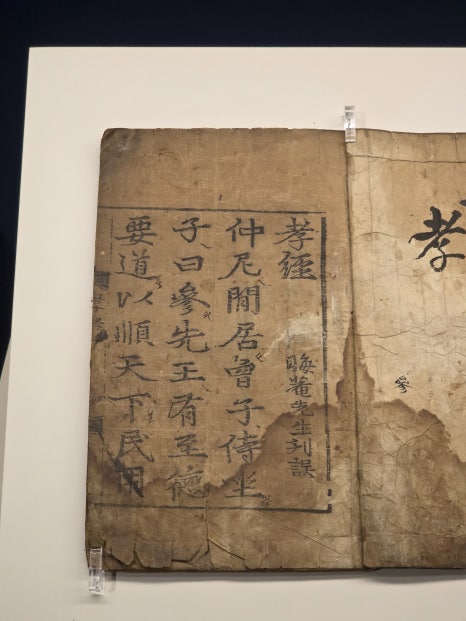 孝
孝經
晦菴先生刊誤
仲尼閒居曾子侍坐
子曰參先王有至德
要道以順天下民用